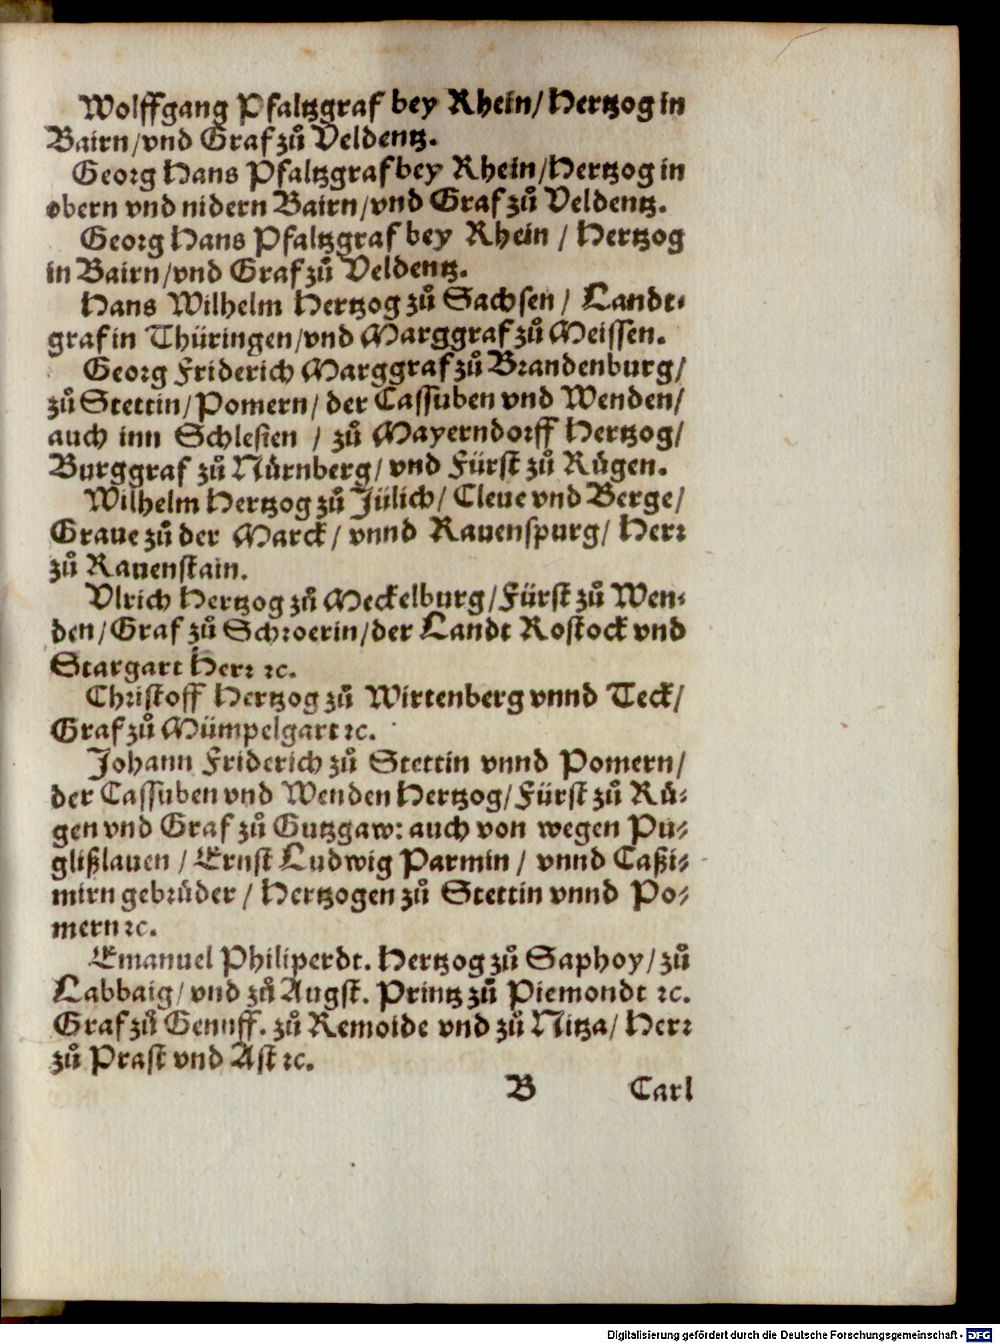 Wolffgang Pfaltzgraf bey Rhein/ Hertzog in
Bairn/vnd Graf zů Veldentz.
Georg Hans Pfaltzgraf bey Rhein/Hertzog in
obern vnd nidern Bairn/vnd Graf zů Veldentz.
Georg Hans Pfaltzgraf bey Rhein / Hertzog
in Bairn/vnd Graf zů Veldentz.
Hans Wilhelm Hertzog zů Sachsen/ Landt⸗
graf in Thüringen/vnd Marggraf zů Meissen.
Georg Friderich Marggraf zů Brandenburg/
zů Stettin/Pomern/ der Cassuben vnd Wenden/
auch inn Schlesien / zů Mayerndorff Hertzog/
Burggraf zů Nürnberg/ vnd Fürst zů Rügen.
Wilhelm Hertzog zů Jülich/ Cleue vnd Berge/
Graue zů der Marck/ vnnd Rauenspurg/ Herr
zů Rauenstain.
Vlrich Hertzog zů Meckelburg/Fürst zů Wen⸗
den/Graf zů Schwerin/der Landt Rostock vnd
Stargart Herr ꝛc.
Christoff Hertzog zů Wirtenberg vnnd Teck/
Graf zů Mümpelgart ꝛc.
Johann Friderich zů Stettin vnnd Pomern/
der Cassuben vnd Wenden Hertzog/Fürst zů Rü⸗
gen vnd Graf zů Gutzgaw: auch von wegen Pu⸗
glißlauen / Ernst Ludwig Parmin / vnnd Caßi⸗
mirn gebrüder / Hertzogen zů Stettin vnnd Po⸗
mern ꝛc.
Emanuel Philiperdt. Hertzog zů Saphoy/ zů
Labbaig/ vnd zů Augst. Printz zů Piemondt ꝛc.
Graf zů Genuff. zů Remoide vnd zů Nitza/ Herr
zů Prast vnd Ast ꝛc.
B Carl
Digitalisierung gefördert durch die Deutsche Forschungsgemeinschaft - DFG